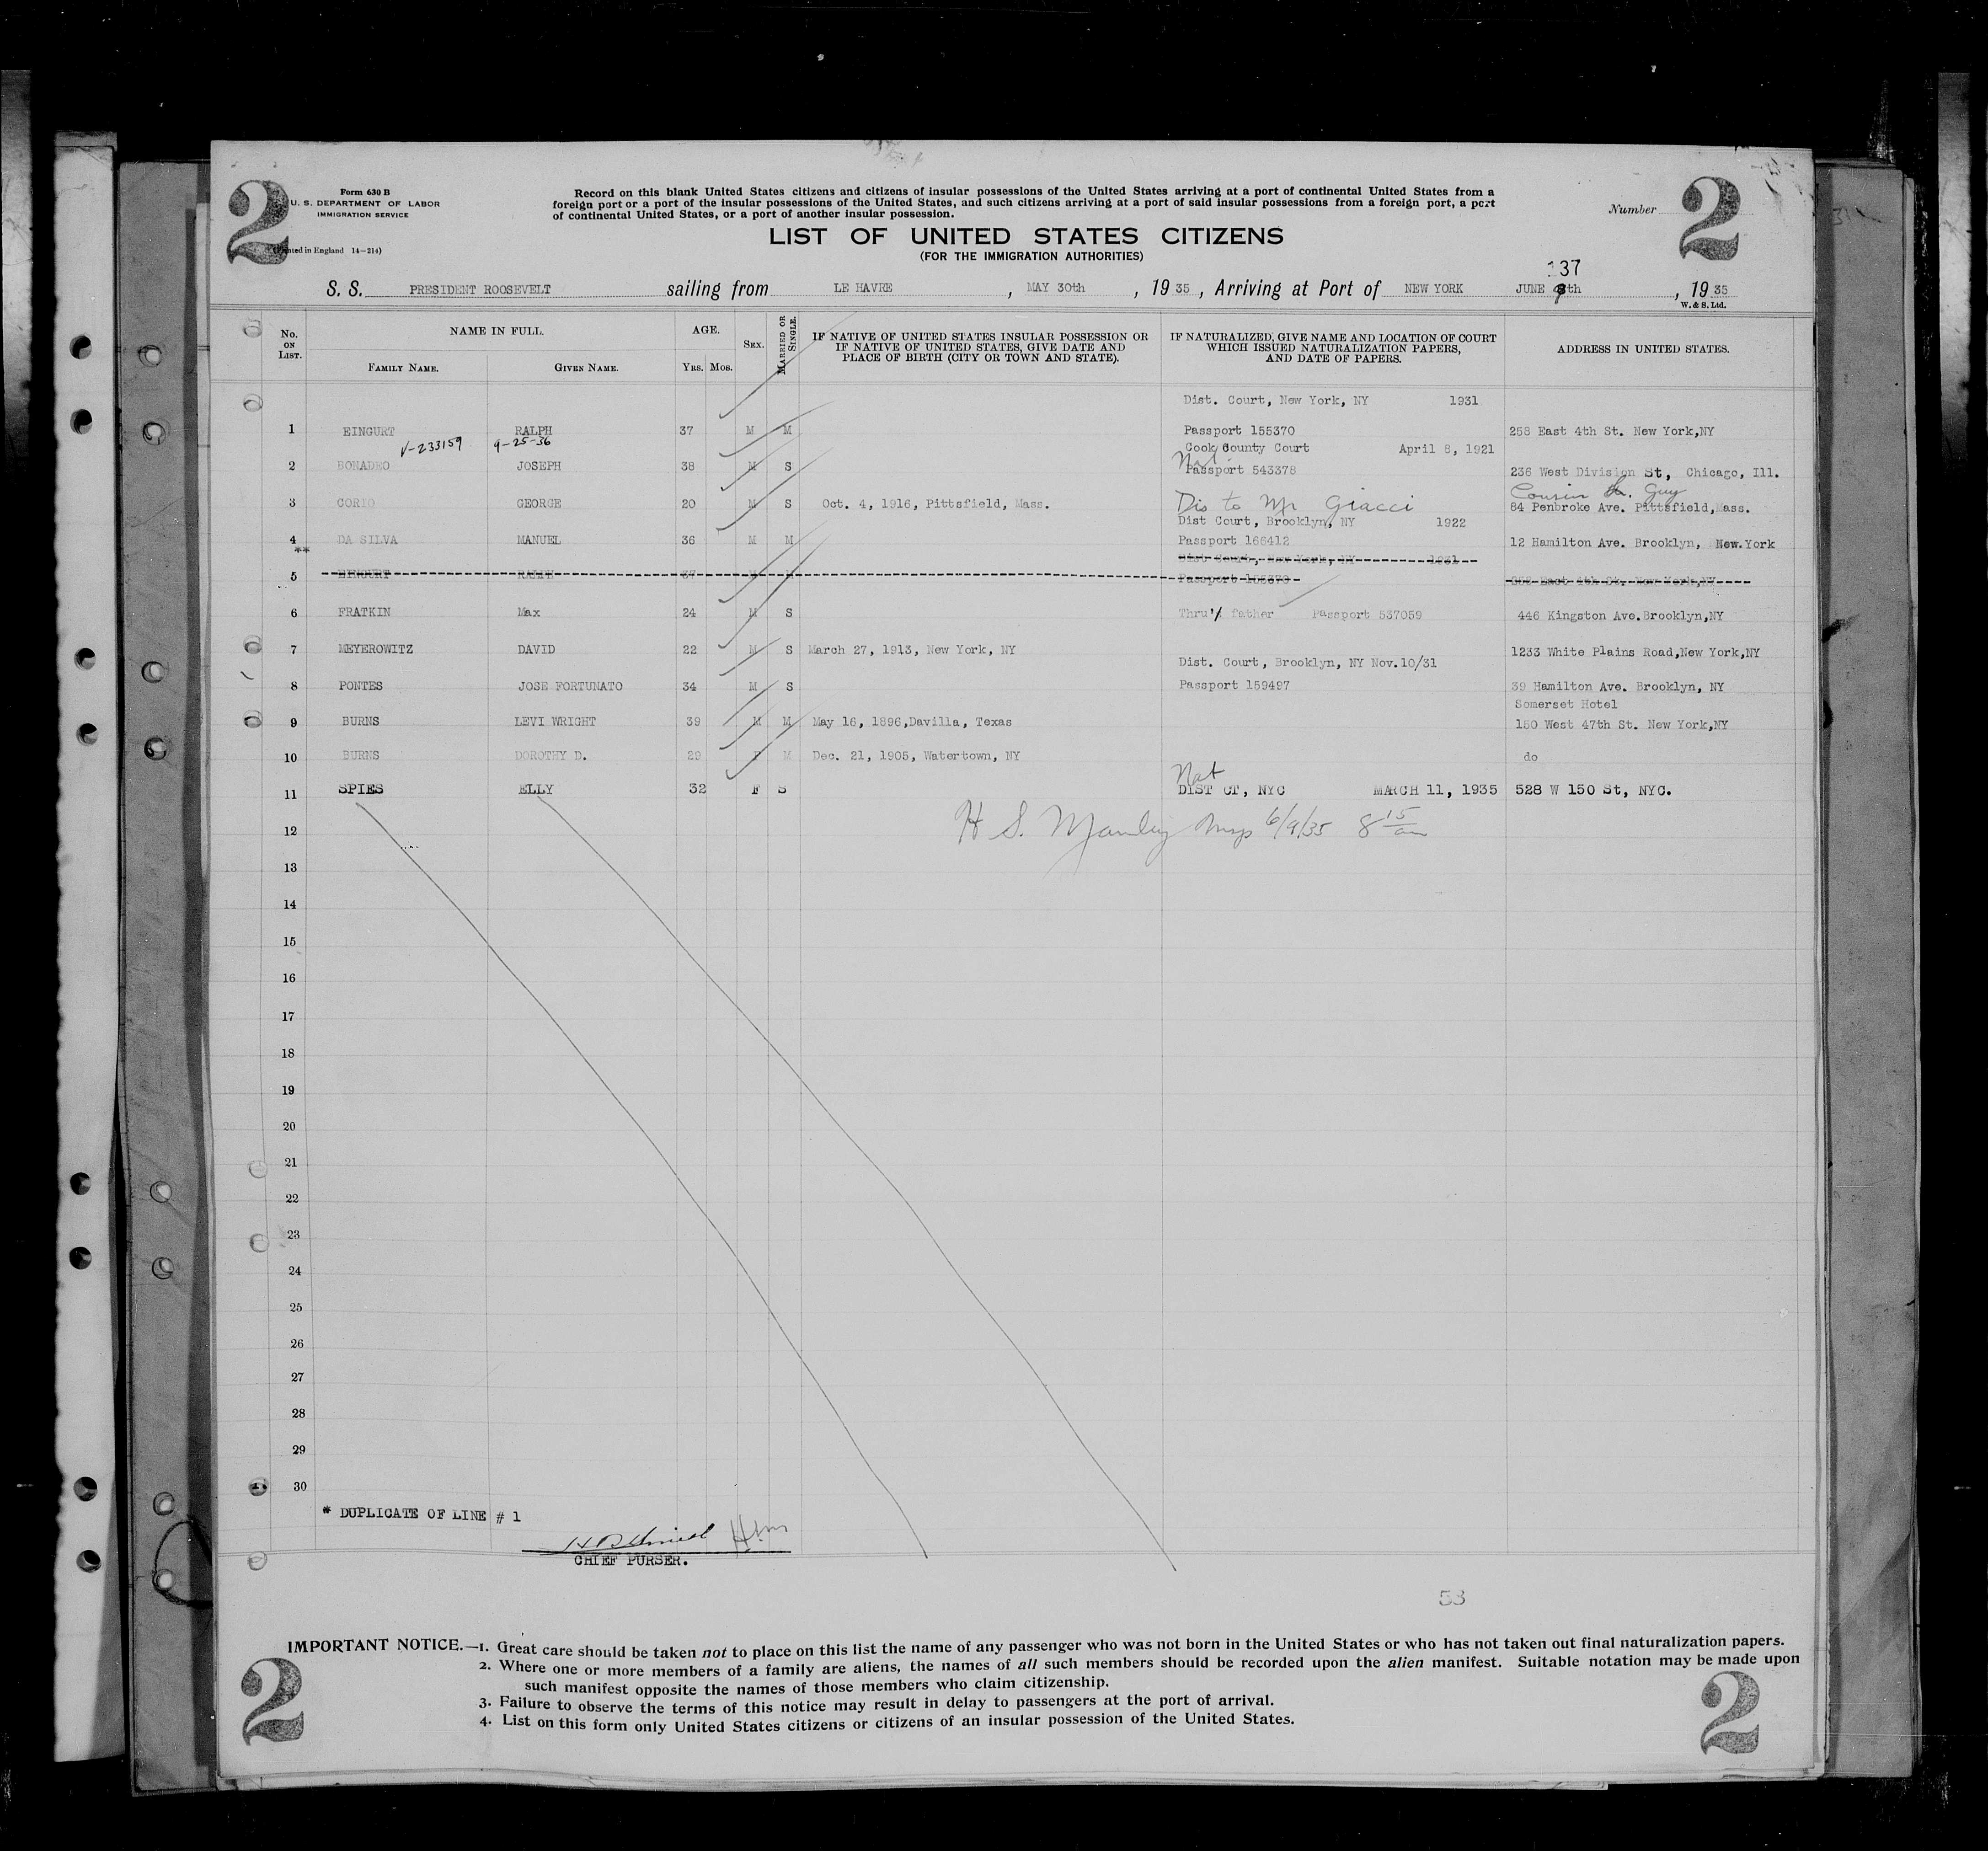 2
Form 630 B
U. S. DEPARTMENT OF LABOR
IMMIGRATION SERVICE
in England 14—214)
Record on this blank United States citizens and citizens of insular possessions of the United States arriving at a port of continental United States from a
foreign port or a port of the insular possessions of the United States, and such citizens arriving at a port of said insular possessions from a foreign port, a port
of continental United States, or a port of another insular possession.
Number
2
LIST OF UNITED STATES CITIZENS
(FOR THE IMMIGRATION AUTHORITIES)
137
S. S. PRESIDENT ROOSEVELT sailing from LE HAVRE , MAY 30th , 19 35 , Arriving at Port of NEW YORK JUNE 9th , 19 35
W. & S. Ltd.
No. ON LIST. NAME IN FULL. AGE. SEX. MARRIED OR SINGLE. IF NATIVE OF UNITED STATES INSULAR POSSESSION OR IF NATIVE OF UNITED STATES, GIVE DATE AND PLACE OF BIRTH (CITY OR TOWN AND STATE). IF NATURALIZED, GIVE NAME AND LOCATION OF COURT WHICH ISSUED NATURALIZATION PAPERS, AND DATE OF PAPERS. ADDRESS IN UNITED STATES.
FAMILY NAME. GIVEN NAME. YRS. MOS.
Dist. Court, New York, NY 1931
1 EINGURT RALPH 37 M M Passport 155370 258 East 4th St. New York,NY
V-233159 9-25-36 Cook County Court April 8, 1921
Nat
2 BONADEO JOSEPH 38 M S Passport 543378 236 West Division St, Chicago, Ill.
Cousin Guy
3 CORIO GEORGE 20 M S Oct. 4, 1916, Pittsfield, Mass. Dis to Mr Giacci 84 Penbroke Ave. Pittsfield,Mass.
Dist Court, Brooklyn, NY 1922
4 DA SILVA MANUEL 36 M M Passport 166412 12 Hamilton Ave. Brooklyn, New.York
**
Dist Court, New York, NY 1931
5 EINGURT RALPH 37 M M Passport 155370 258 East 4th St. New York,NY
6 FRATKIN Max 24 M S Thru father Passport 537059 446 Kingston Ave.Brooklyn,NY
7 MEYEROWITZ DAVID 22 M S March 27, 1913, New York, NY 1233 White Plains Road,New York,NY
Dist. Court, Brooklyn, NY Nov.10/31
8 PONTES JOSE FORTUNATO 34 M S Passport 159497 39 Hamilton Ave. Brooklyn, NY
Somerset Hotel
9 BURNS LEVI WRIGHT 39 M M May 16, 1896,Davilla, Texas 150 West 47th St. New York,NY
10 BURNS DOROTHY D. 29 F M Dec. 21, 1905, Watertown, NY do
Nat
11 SPIES ELLY 32 F S DIST CT, NYC MARCH 11, 1935 528 W 150 St, NYC.
H S. Manley Insp 6/9/35 8 15 am
12
13
14
15
16
17
18
19
20
21
22
23
24
25
26
27
28
29
30
* DUPLICATE OF LINE # 1
CHIEF PURSER.
53
IMPORTANT NOTICE.—1. Great care should be taken not to place on this list the name of any passenger who was not born in the United States or who has not taken out final naturalization papers.
2. Where one or more members of a family are aliens, the names of all such members should be recorded upon the alien manifest. Suitable notation may be made upon
such manifest opposite the names of those members who claim citizenship.
3. Failure to observe the terms of this notice may result in delay to passengers at the port of arrival.
4. List on this form only United States citizens or citizens of an insular possession of the United States.
2
2